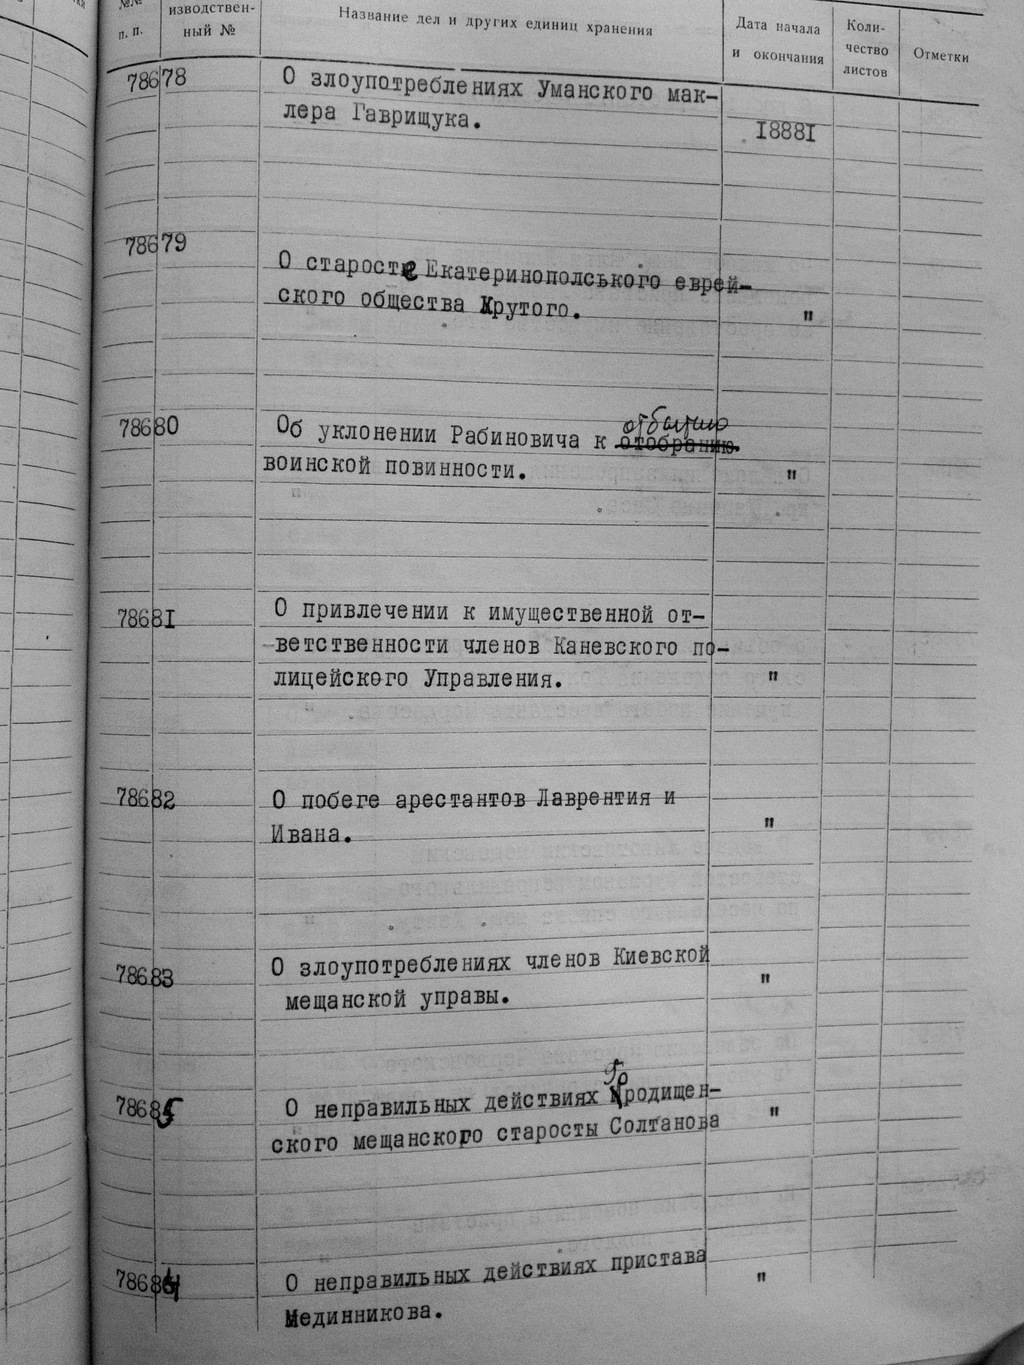 №№
п. п.
изводствен-
ный №
Название дел и других единиц хранения
Дата начала
и окончания
Коли-
чество
листов
Отметки
78678
О злоупотреблениях Уманского мак-
лера Гаврищука.
I888I
78679
О старосте Екатеринополського еврей-
ского общества Крутого.
"
78680
отбытию
Об уклонении Рабиновича к отобранию.
воинской повинности.
"
7868I
О привлечении к имущественной от-
ветственности членов Каневского по-
лицейского Управления.
"
78682
О побеге арестантов Лаврентия и
Ивана.
"
78683
О злоупотреблениях членов Киевской
мещанской управы.
"
78685
О неправильных действиях Городищен-
ского мещанского старосты Солтанова
"
78684
О неправильных действиях пристава
Мединникова.
"